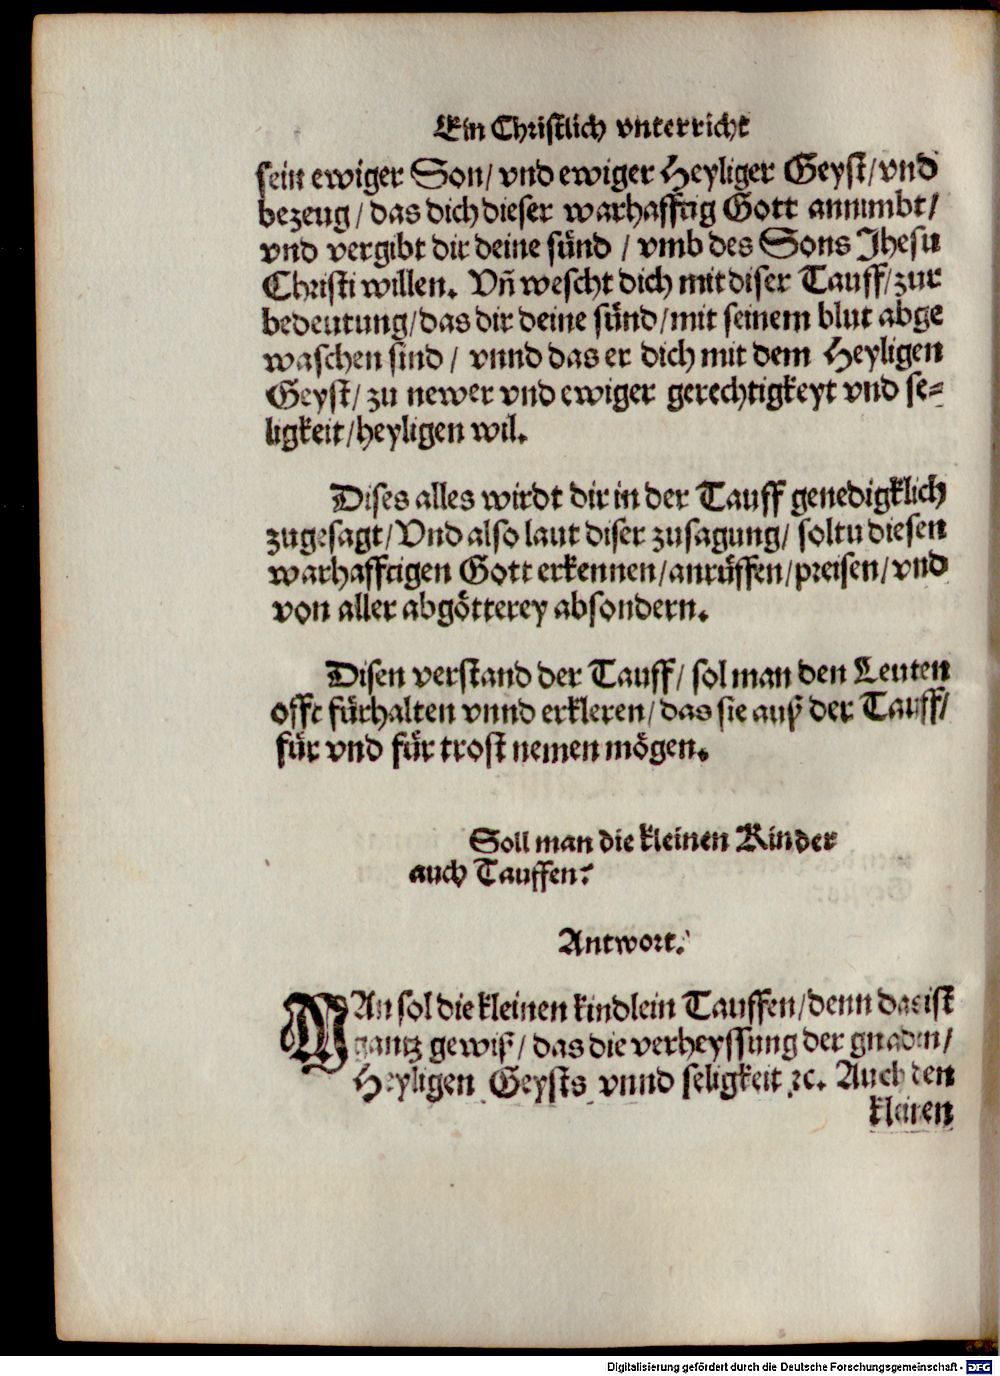 Ein Christlich vnterricht
sein ewiger Son/ vnd ewiger Heyliger Geyst/ vnd
bezeug/ das dich dieser warhafftig Gott annimbt/
vnd vergibt dir deine sünd / vmb des Sons Jhesu
Christi willen. Vñ wescht dich mit diser Tauff/ zur
bedeutung/ das dir deine sünd/ mit seinem blut abge
waschen sind / vnnd das er dich mit dem Heyligen
Geyst/ zu newer vnd ewiger gerechtigkeyt vnd se⸗
ligkeit/ heyligen wil.
Dises alles wirdt dir in der Tauff genedigklich
zugesagt/ Vnd also laut diser zusagung/ soltu diesen
warhafftigen Gott erkennen/ anrüffen/ preisen/ vnd
von aller abgötterey absondern.
Disen verstand der Tauff/ sol man den Leuten
offt fürhalten vnnd erkleren/ das sie auß der Tauff/
für vnd für trost nemen mögen.
Soll man die kleinen Kinder
auch Tauffen?
Antwort.
MAn sol die kleinen kindlein Tauffen/ denn das ist
gantz gewiß/ das die verheyssung der gnaden/
Heyligen Geysts vnnd seligkeit ꝛc. Auch den
kleinen
Digitalisierung gefördert durch die Deutsche Forschungsgemeinschaft - DFG